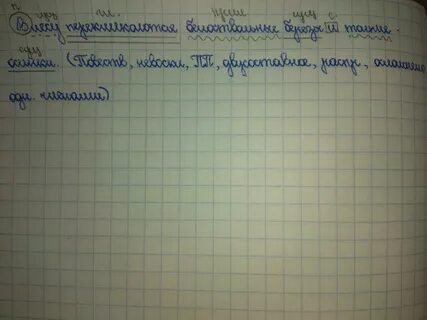 п. сущ гл. прил сущ с.
В лесу перекликаются белоствольные берёзы и тонкие
сущ
осинки. (Повеств, невоскл, ПП, двусоставное, распр, осложнено
одн. членами)